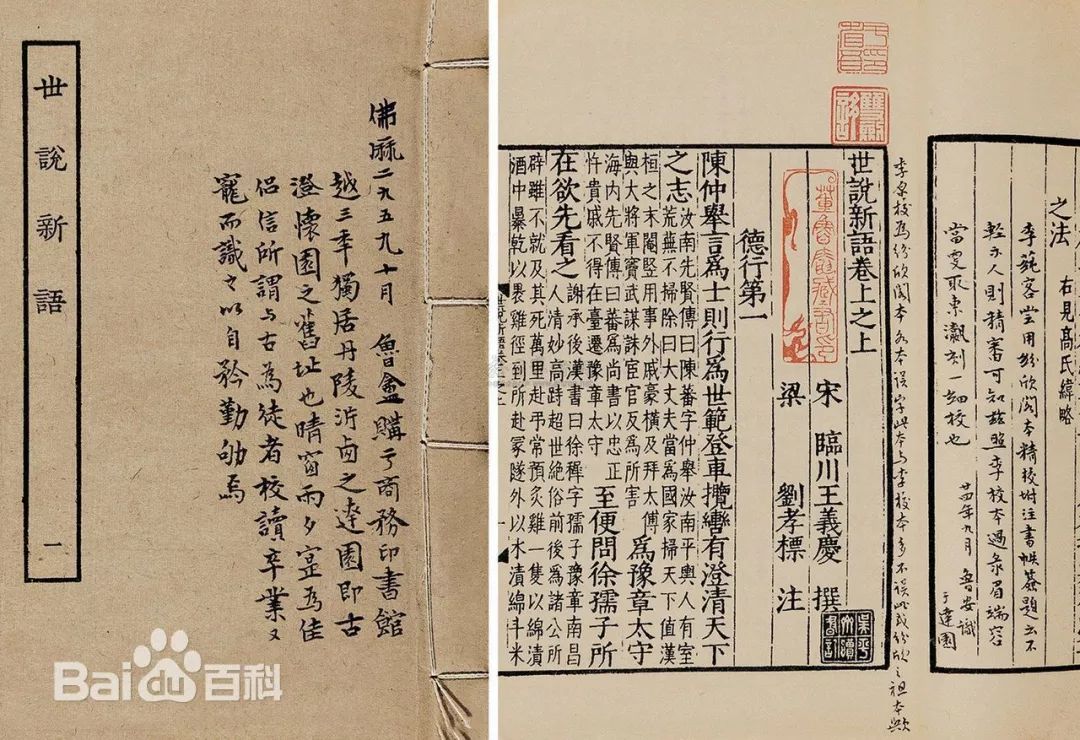 世說新語 一
佛厤二九五九十月 魯盦購于商務印書館
越三年獨居丹陵沂之達園即古
澄懷園之舊址也晴窗雨夕寔爲佳
侶信所謂与古為徒者校讀卒業又
而識之以自矜勤劬焉
Bai百科
之法 右見高氏緯略
李蒓客嘗用紛欣阁本精校坿注書帙題云不
輕示人則精審可知茲照李校本過彔眉端容
當更取東瀛刻一細校也
廿四年九月 魯安識
于達園
各本誤字此本与李校本多不誤此或紛欣之祖本歟
世說新語卷上之上
宋 臨川王義慶 撰
梁 劉孝標 注
董魯盦藏書印
德行第一
陳仲舉言爲士則行爲世範登車攬轡有澄清天下
之志
汝南先賢傳曰陳蕃字仲舉汝南平輿人有室
荒蕪不掃除曰大丈夫當爲國家掃天下值漢
桓之末閹豎用事外戚豪橫及拜太傅
與大將軍竇武謀誅宦官反爲所害
爲豫章太守
海内先賢傳曰蕃爲尚書以忠正
忤貴戚不得在臺遷豫章太守
至便問徐孺子所
在欲先看之
謝承後漢書曰徐穉字孺子豫章南昌
人清妙高跱超世絶俗前後爲諸公所
辟雖不就及其死萬里赴弔常預炙雞一隻以綿漬
酒中暴乾以裹雞徑到所赴冢隧外以水漬綿斗米